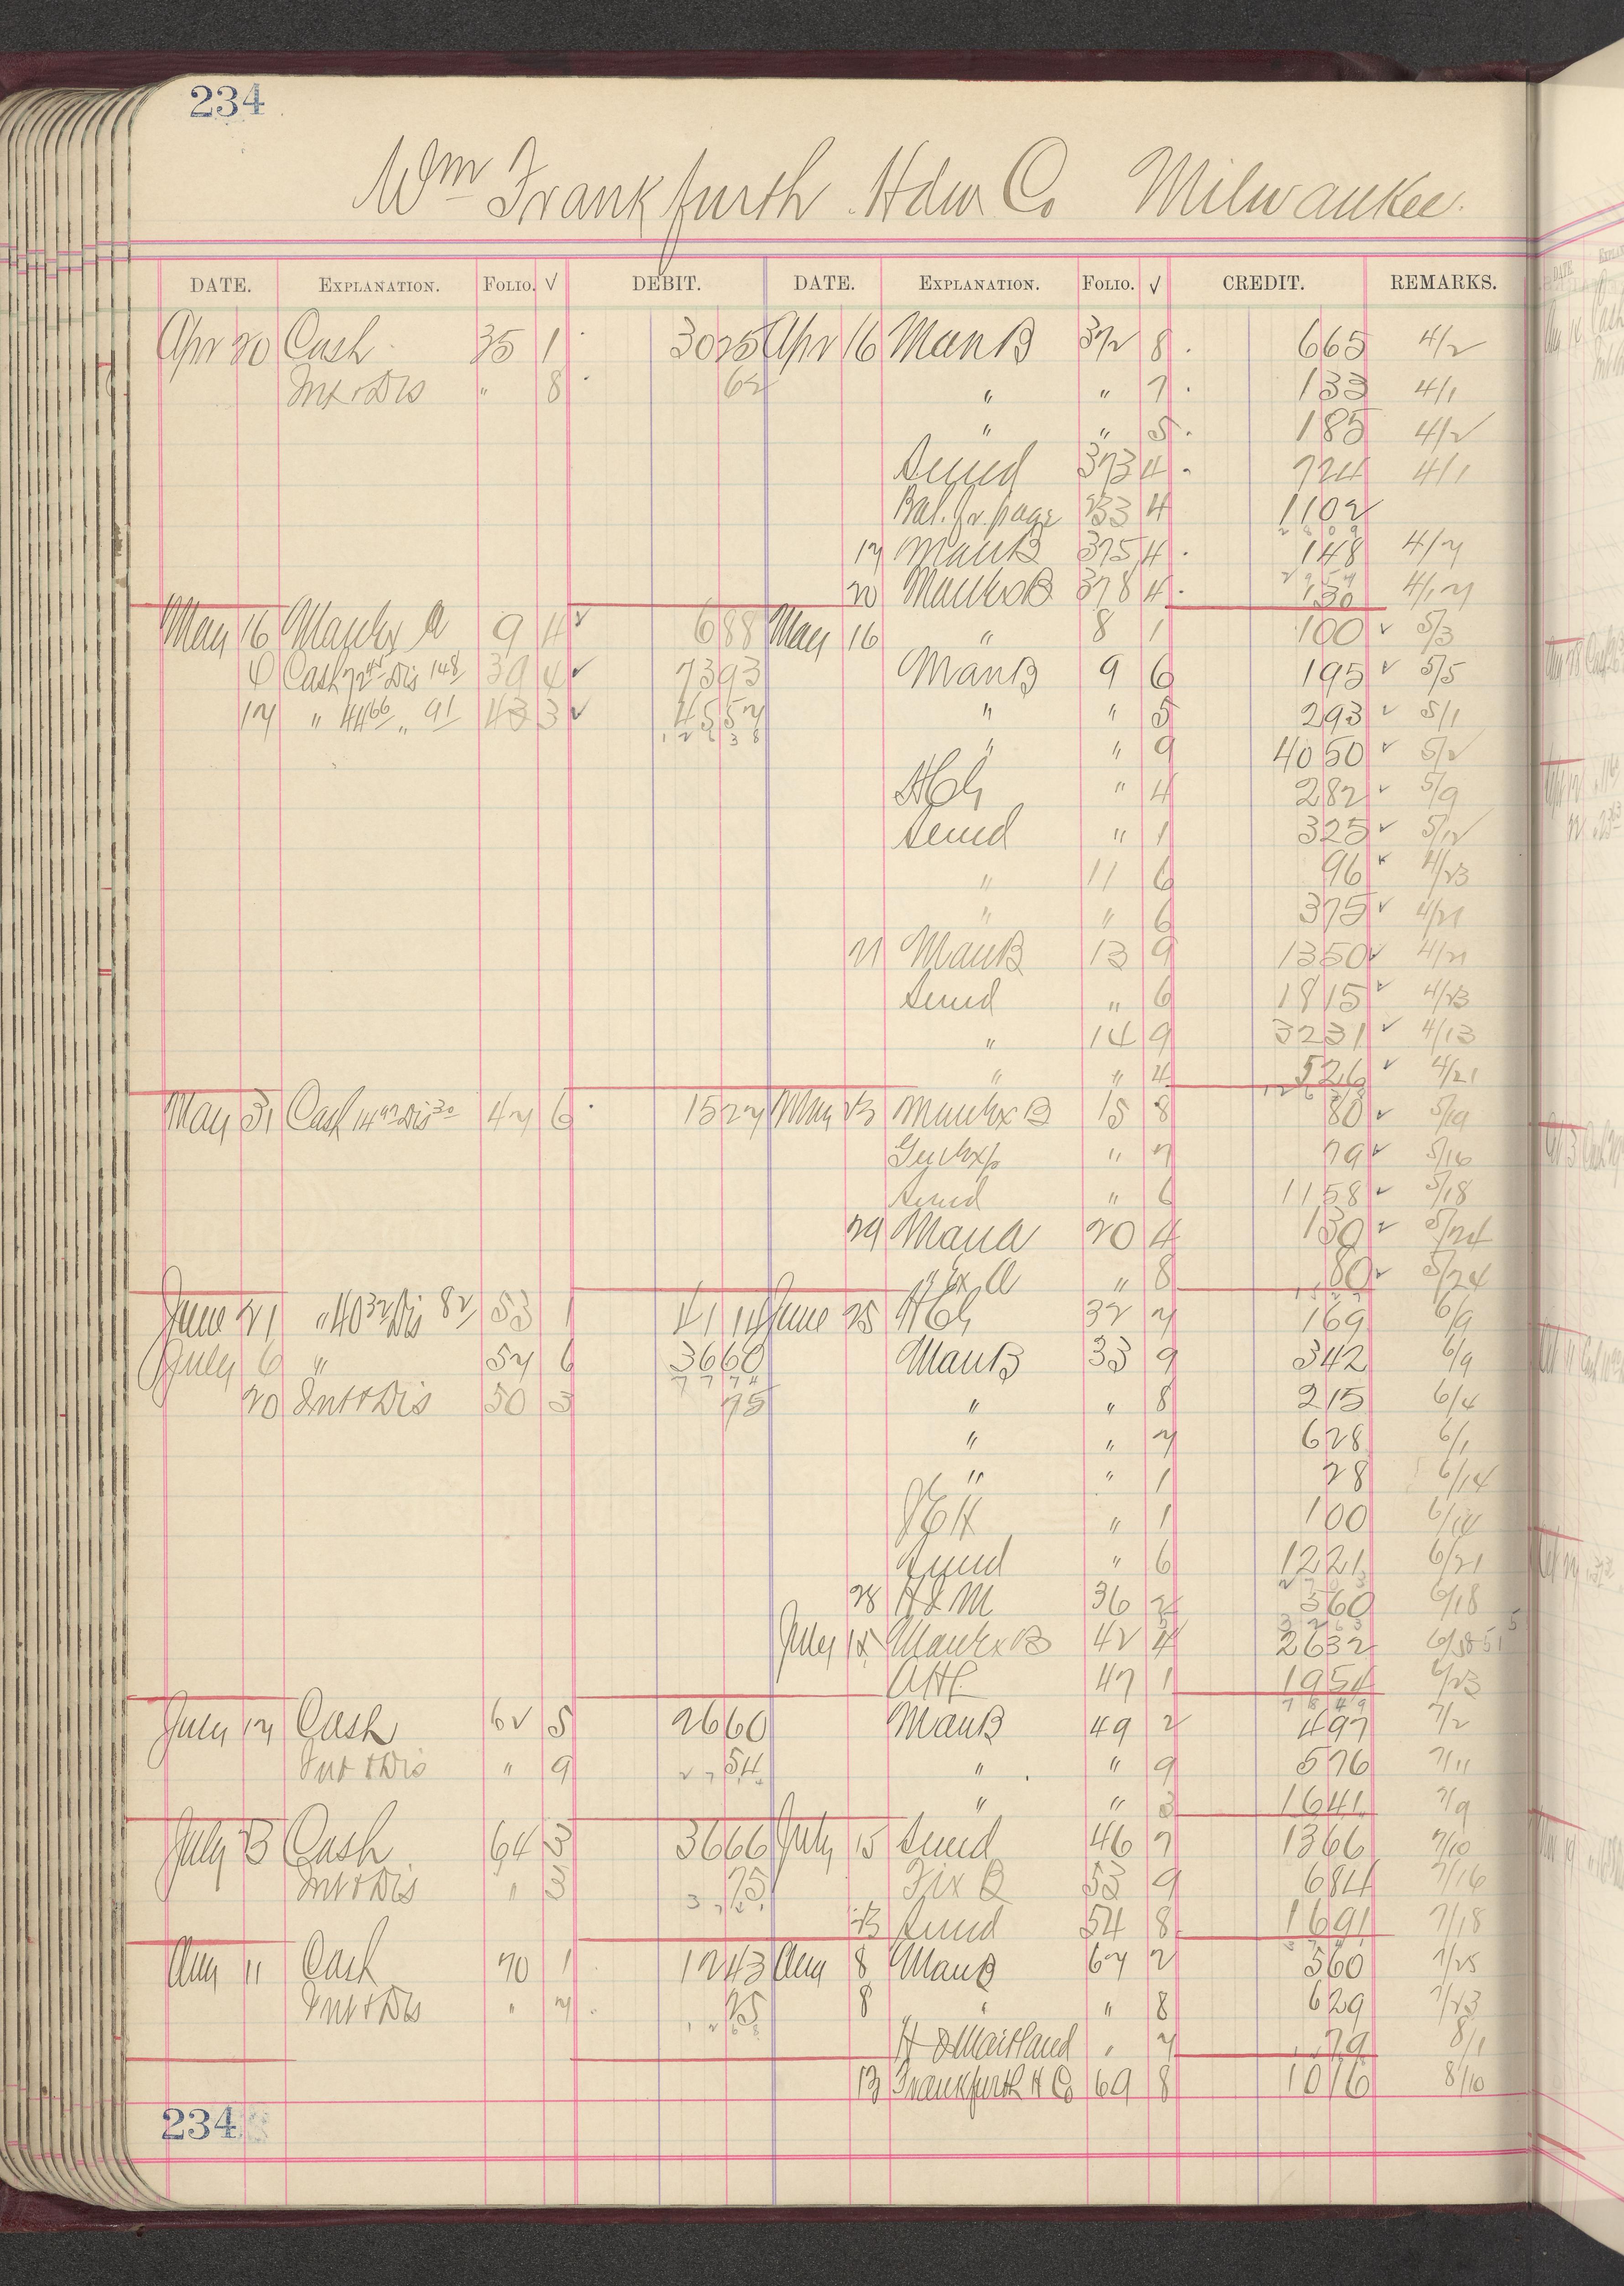 234
Wm Frankfurth Hdw Co Milwaukee.
DATE. EXPLANATION. FOLIO. √ DEBIT. DATE. EXPLANATION. FOLIO. √ CREDIT. REMARKS.
Apr 20 Cash 35 1 3025 Apr 16 Man B 372 8 665 4/2
Int & Dis " 8 62 " " 7 133 4/1
" " 5 185 4/2
Sund 373 4 724 4/1
Bal. fr. page 233 4 1102
17 Man B 375 4 148 4/7
20 Man Ex B 378 4 130 4/17
May 16 Man Ex A 9 4 688 May 16 " 8 1 100 5/3
Cash Dis 148 39 4 7393 Man B 9 6 195 5/5
17 " 4466 " 91 43 3 4557 " " 5 293 5/1
" " 9 4050 5/2
" 4 282 5/9
Sund " 1 325 5/12
" 11 6 96 4/23
" " 6 375 4/21
21 Man B 13 9 1350 4/21
Sund " 6 1815 4/23
" 14 9 3231 4/13
" " 4 526 4/21
May 31 Cash 1497 Dis 30 47 6 1527 May 23 Man Ex B 15 8 80 5/19
" 7 79 5/16
Sund " 6 1158 5/18
29 Man A 20 4 130 5/24
" Ex A " 8 80 5/24
June 21 " 4032 Dis 82 53 1 41 14 June 25 32 7 169 6/9
July 6 " 57 6 3660 Man B 33 9 342 6/9
20 Int & Dis 50 3 75 " " 8 215 6/4
" " 7 628 6/1
" " 1 28 6/14
" 1 100 6/14
Sund " 6 1221 6/21
28 H & M 36 2 360 6/18
July 15 Man Ex B 42 4 2632
47 1 1954 6/23
July 17 Cash 62 5 2660 Man B 49 2 497 7/2
Int & Dis " 9 54 " " 9 576 7/11
" " 3 1641 7/9
July 23 Cash 64 3 3666 July 15 Sund 46 7 1366 7/10
Int & Dis " 3 75 Fix B 53 9 684 7/16
23 Sund 54 8 1691 7/18
Aug 11 Cash 70 1 1243 Aug 8 Man B 67 2 360 7/25
Int & Dis " 7 25 8 " " 8 629 7/23
H & Maitland " 7 79 8/1
13 Frankfurth H Co 69 8 1076 8/10
234